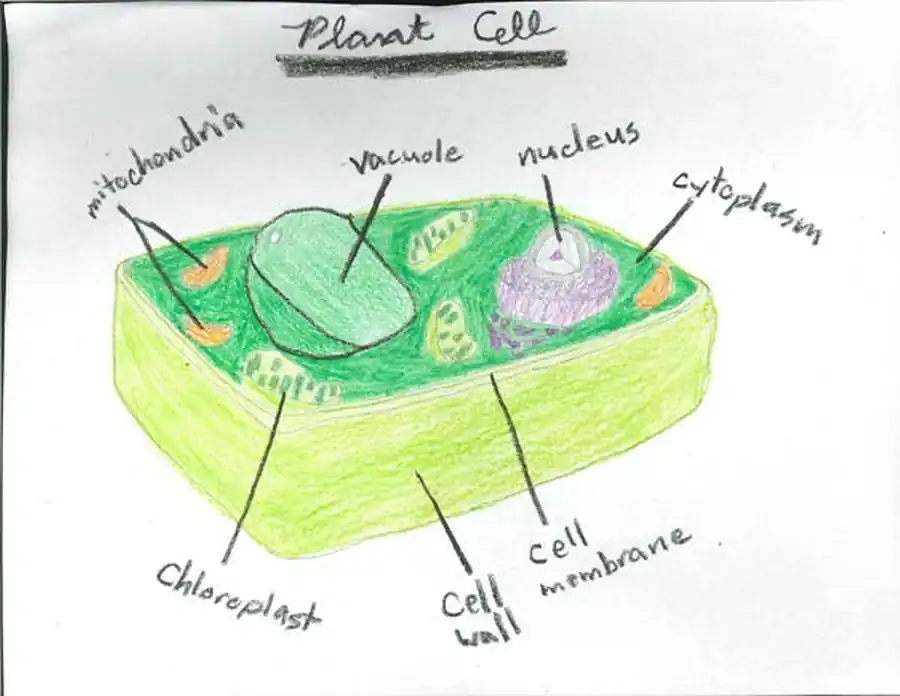 Plant Cell
mitochondria
vacuole
nucleus
cytoplasm
Chloroplast
Cell
wall
cell
membrane